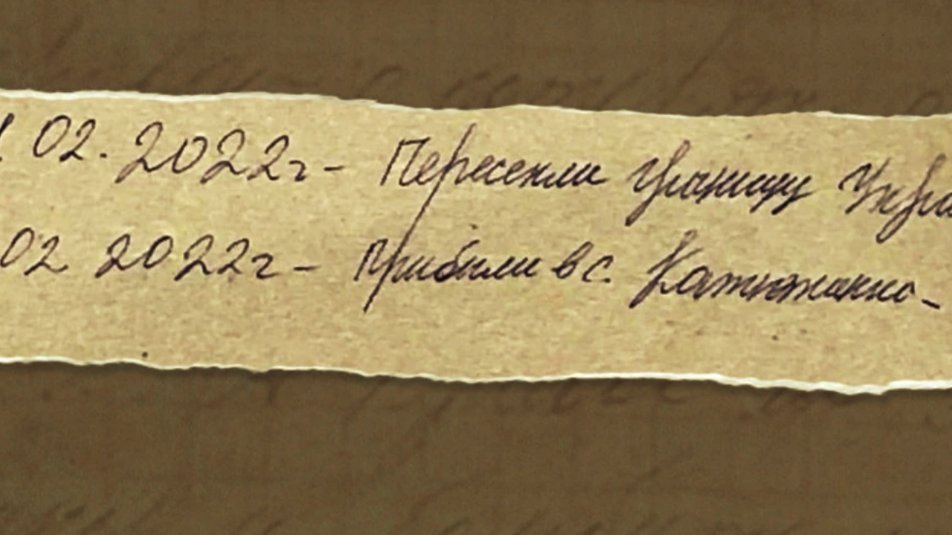 02.2022г - Пересекли границу Укра
02 2022г - Прибыли в с. Катюжанка -